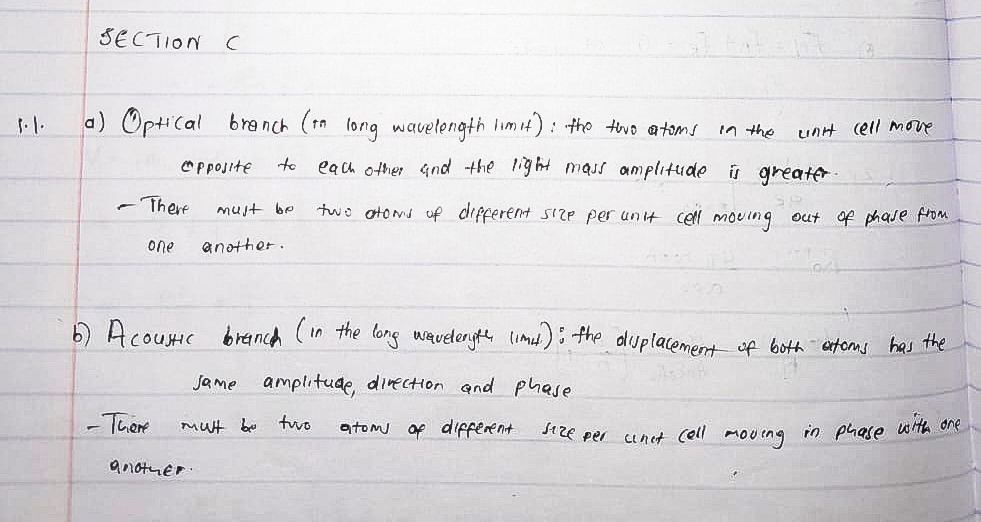 SECTION C
1.1. a) Optical branch (in long wavelength limit) : the two atoms in the unit cell move
opposite to each other and the light mass amplitude is greater.
- There must be two atoms of different size per unit cell moving out of phase from
one another.
b) Acoustic branch (in the long wavelength limit) : the displacement of both atoms has the
same amplitude, direction and phase
- There must be two atoms of different size per unit cell moving in phase with one
another.